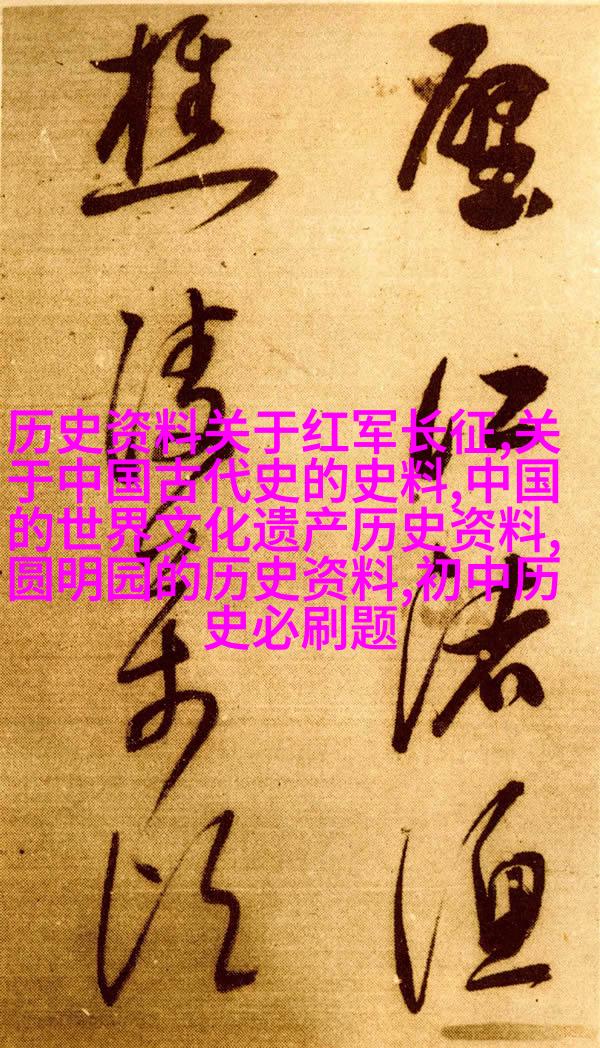 历史资料关于红军长征,关
于中国古代史的史料,中国
的世界文化遗产历史资料,
圆明园的历史资料,初中历
史必刷题
江渚
樵